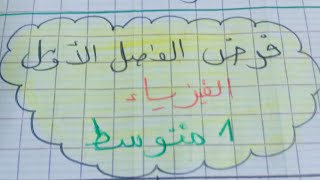 فرض الفصل الأول
الفيزياء
1 متوسط